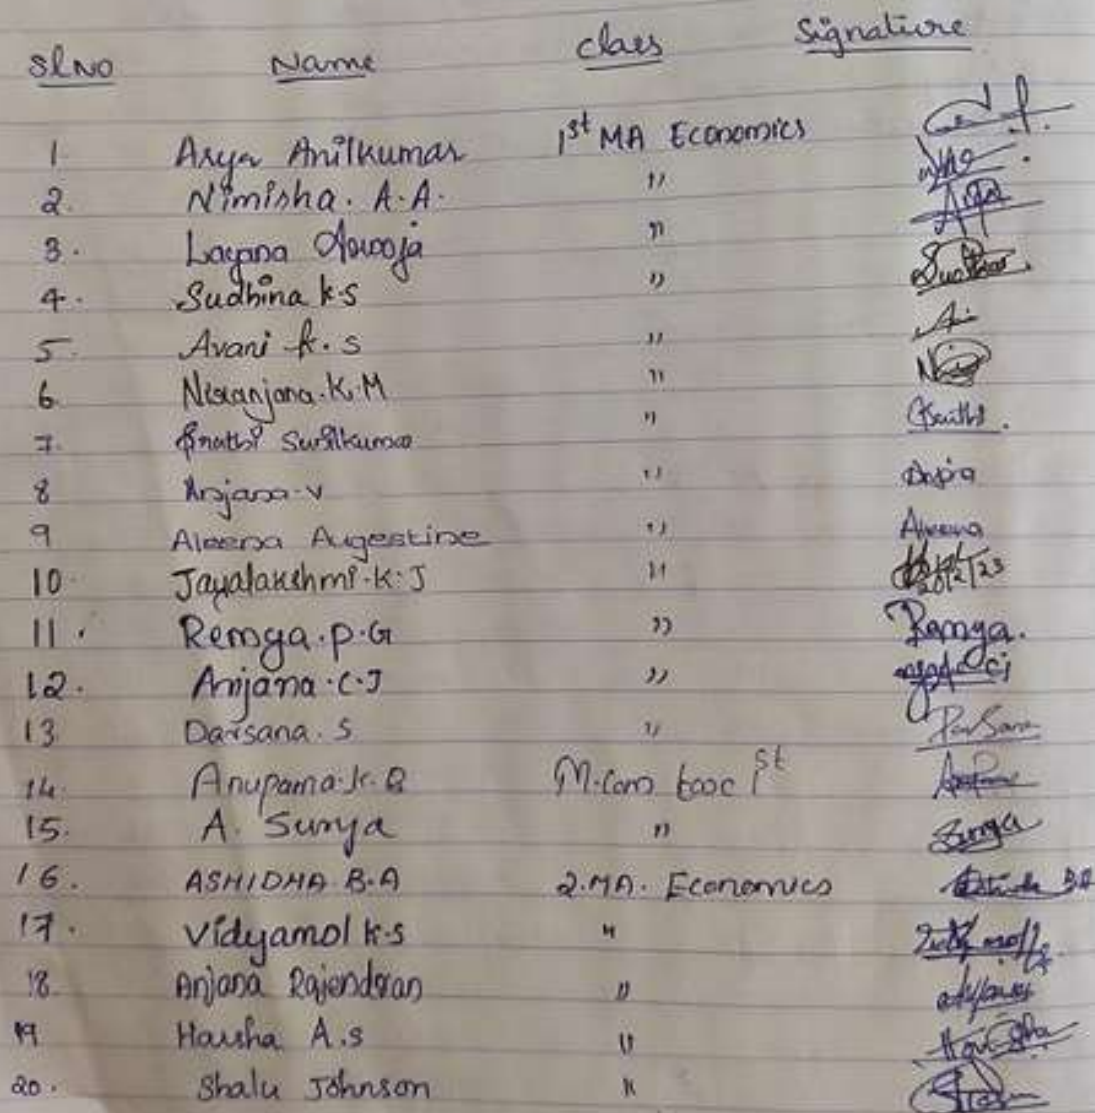 Sl No Name Class Signature
1. Arya Anilkumar 1st MA Economics
2. Nimisha. A.A. "
3. Layana "
4. Sudhina K.S "
5. Avani K.S "
6. Niranjana.K.M "
7. Sunilkumar "
8 Anjana.V " Anjana
9 Aleena Augestine " Aleena
10. Jayalakshmi.K.J " 20/2/23
11. Remya.P.G " Remya.
12. Anjana.C.J "
13. Darsana.S " Darsana
14. Anupama.K.B M.Com 1st
15. A. Surya " Surya
16. ASHIDHA B.A 2.MA. Economics
17. Vidyamol K.S "
18. Anjana Rajendran "
19 Harsha A.S " Harsha
20. Shalu Johnson "